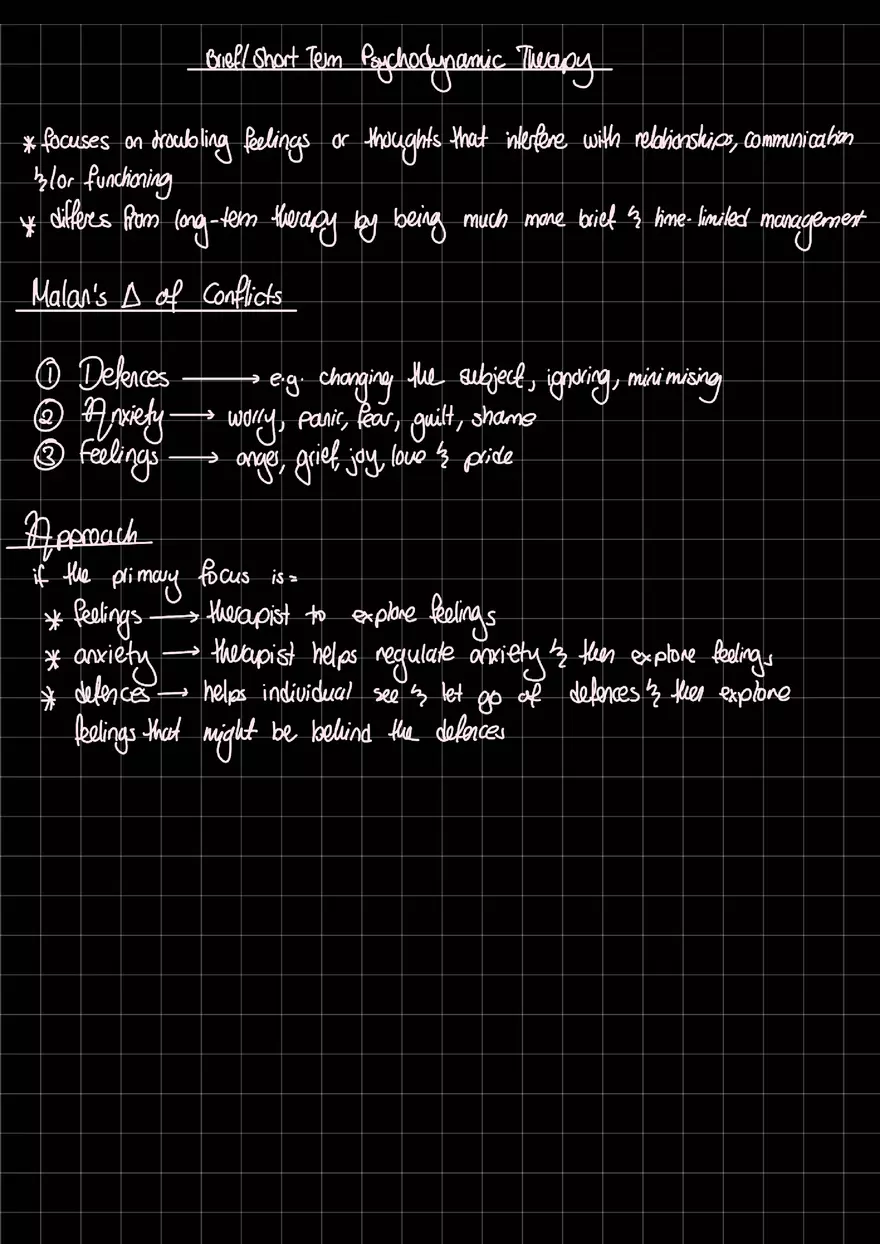 Brief/Short Term Psychodynamic Therapy
* focuses on troubling feelings or thoughts that interfere with relationships, communication
&/or functioning
* differs from long-term therapy by being much more brief & time-limited management
Malan's Δ of Conflicts
① Defences → e.g. changing the subject, ignoring, minimising
② Anxiety → worry, panic, fear, guilt, shame
③ Feelings → anger, grief, joy, love & pride
Approach
if the primary focus is=
* feelings → therapist to explore feelings
* anxiety → therapist helps regulate anxiety & then explore feelings
* defences → helps individual see & let go of defences & then explore
feelings that might be behind the defences